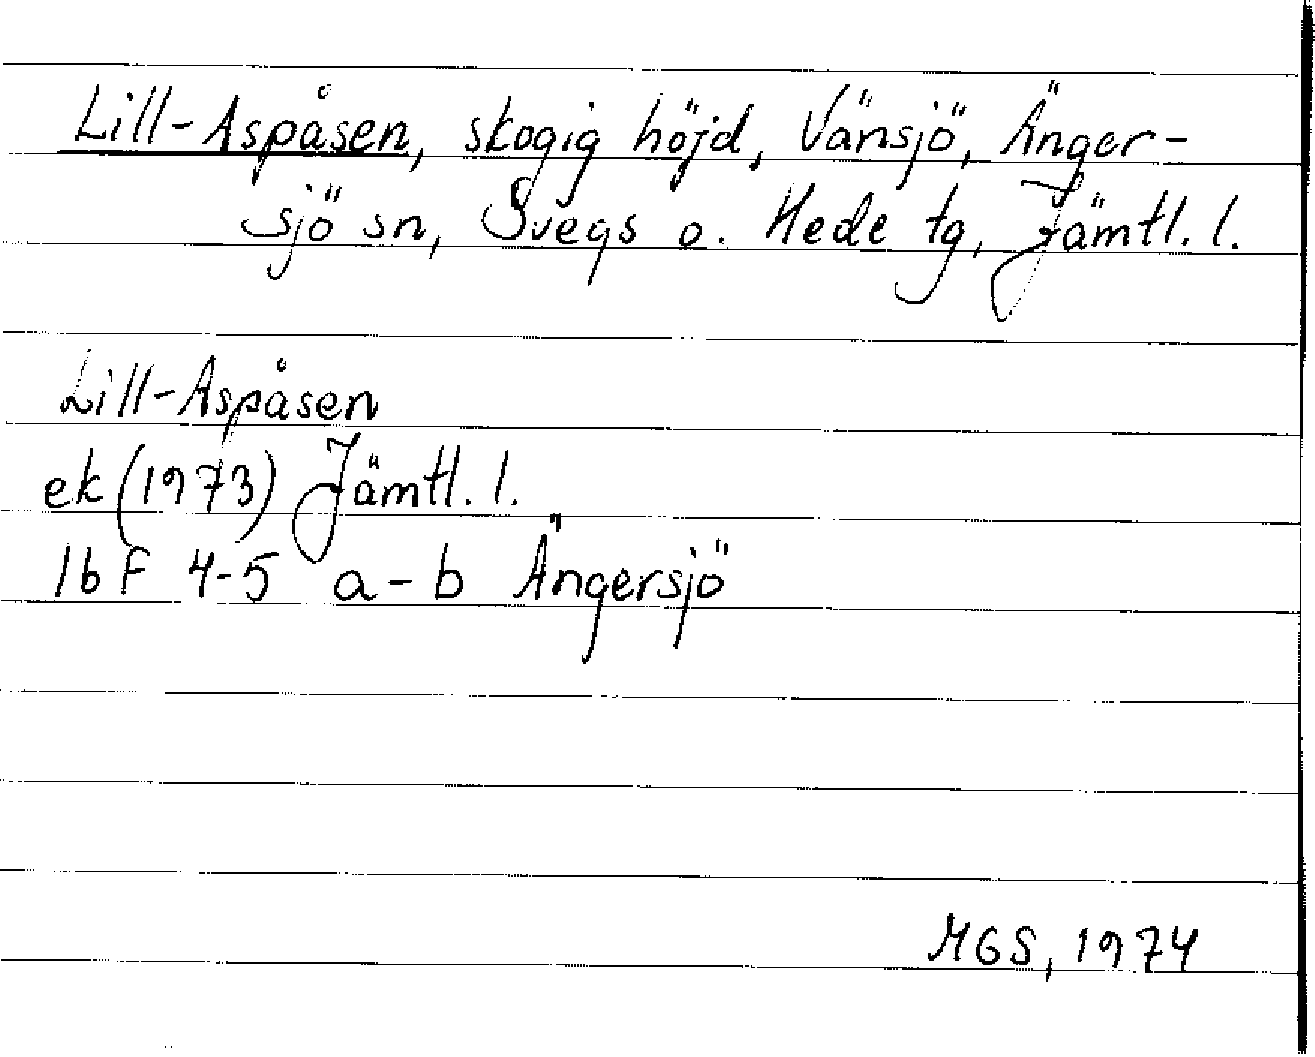 Lill-Aspåsen, skogig höjd, Vänsjö, Änger-
sjö sn, Svegs o. Hede tg, Jämtl. l.
Lill-Aspåsen
ek (1973) Jämtl. l.
16F 4-5 a-b Ängersjö
MGS, 1974